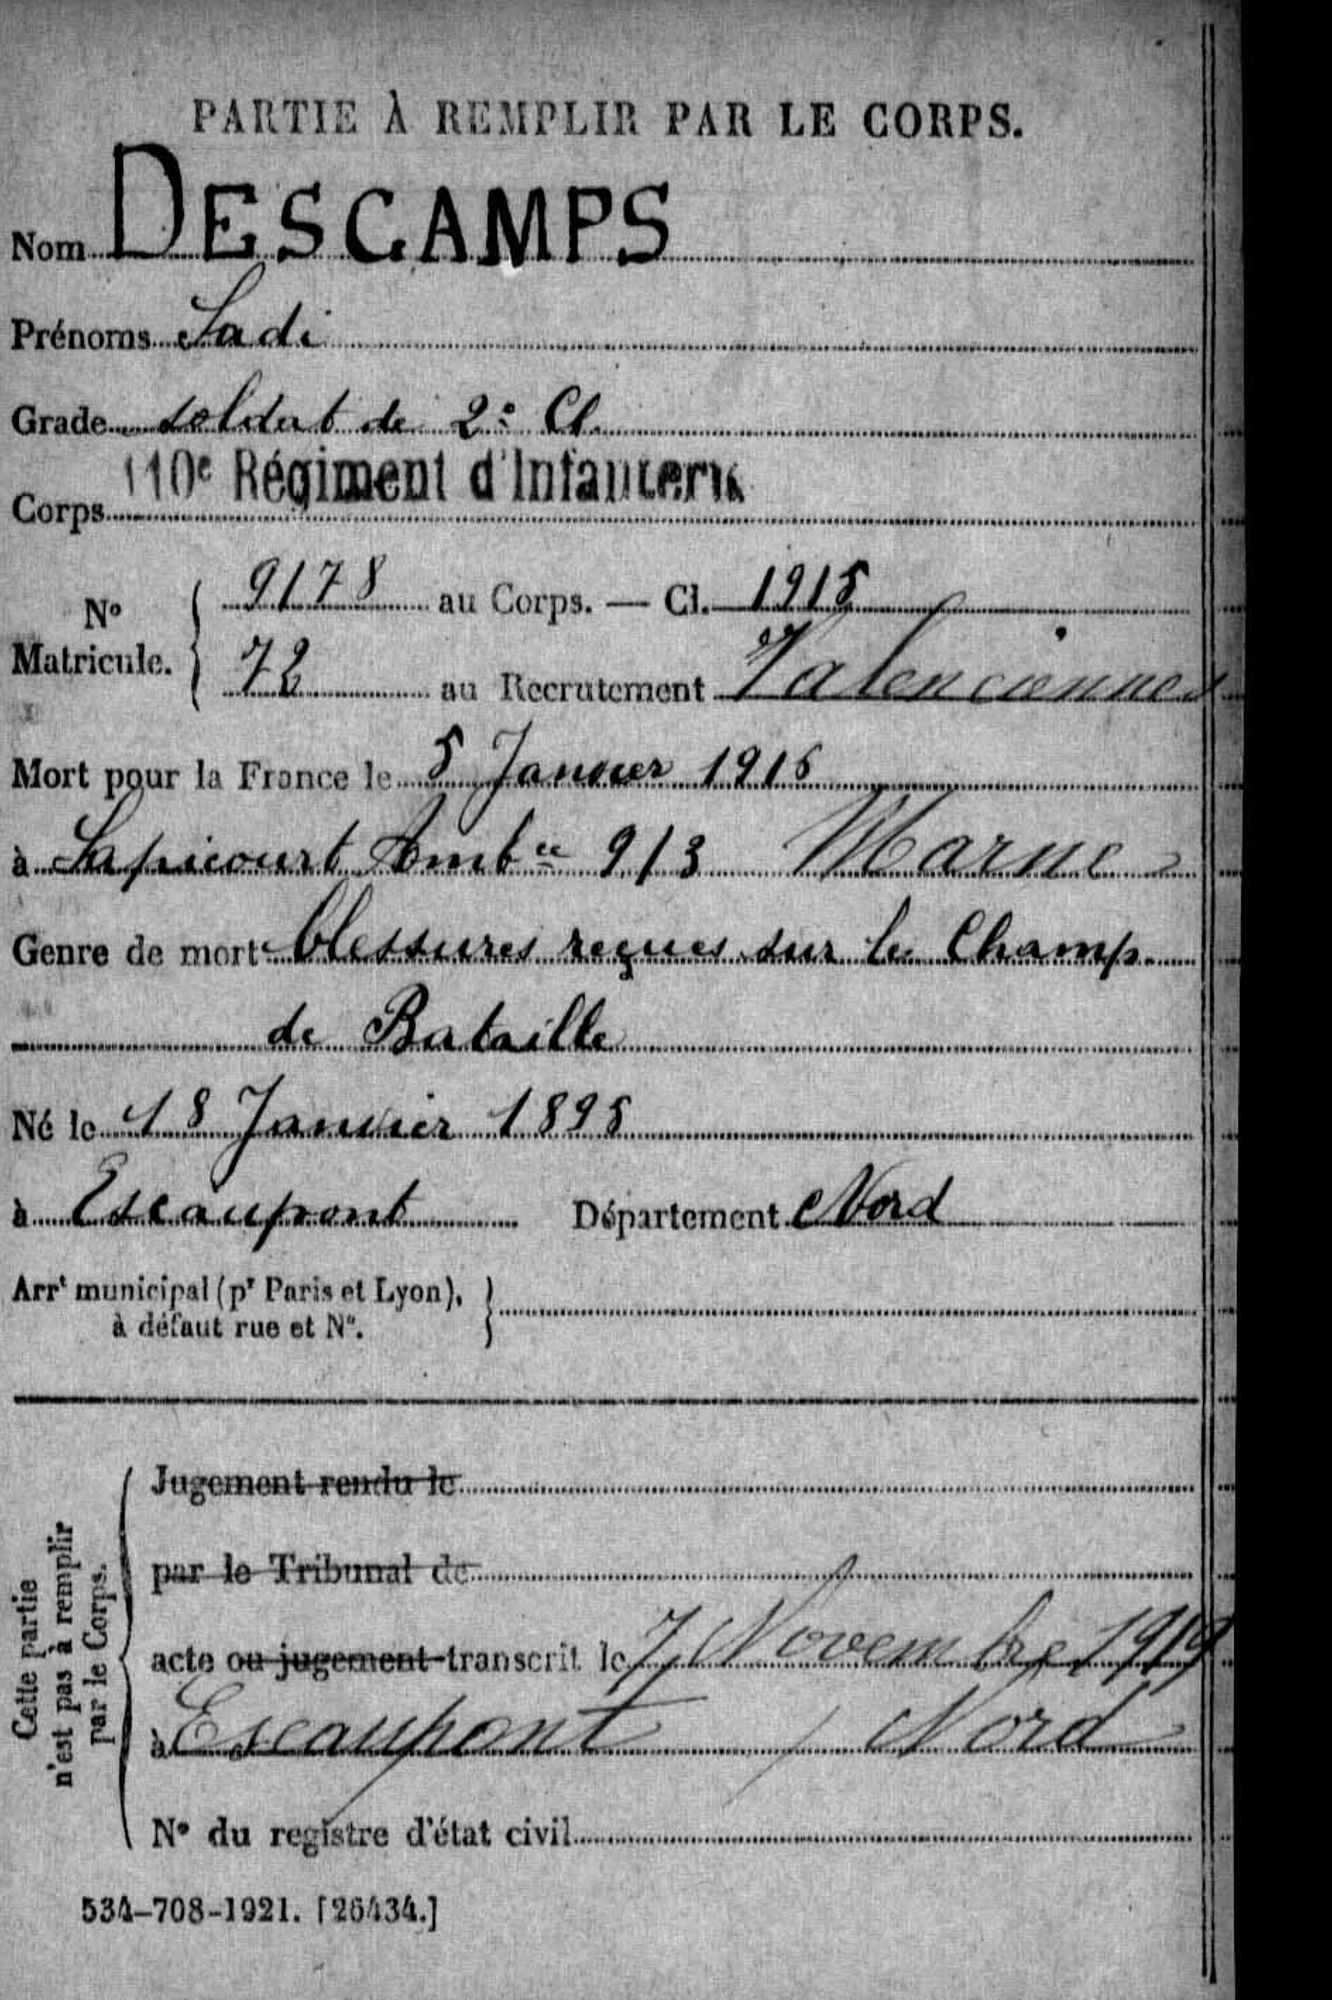 PARTIE À REMPLIR PAR LE CORPS.
Nom DESCAMPS
Prénoms Sadi
Grade soldat de 2e Cl.
Corps 110e Régiment d'Infanterie
No Matricule. 9178 au Corps. — Cl. 1915
72 au Recrutement Valenciennes
Mort pour la France le 5 Janvier 1915
à Sapicourt Ambce 9/3 Marne
Genre de mort blessures reçues sur le Champ
de Bataille
Né le 18 Janvier 1895
à Escaupont Département Nord
Arrt municipal (pr Paris et Lyon),
à défaut rue et No.
Cette partie
n'est pas à remplir
par le Corps.
Jugement rendu le
par le Tribunal de
acte ou jugement transcrit le 7 Novembre 1919
à Escaupont / Nord
No du registre d'état civil
534-708-1921. [26434.]